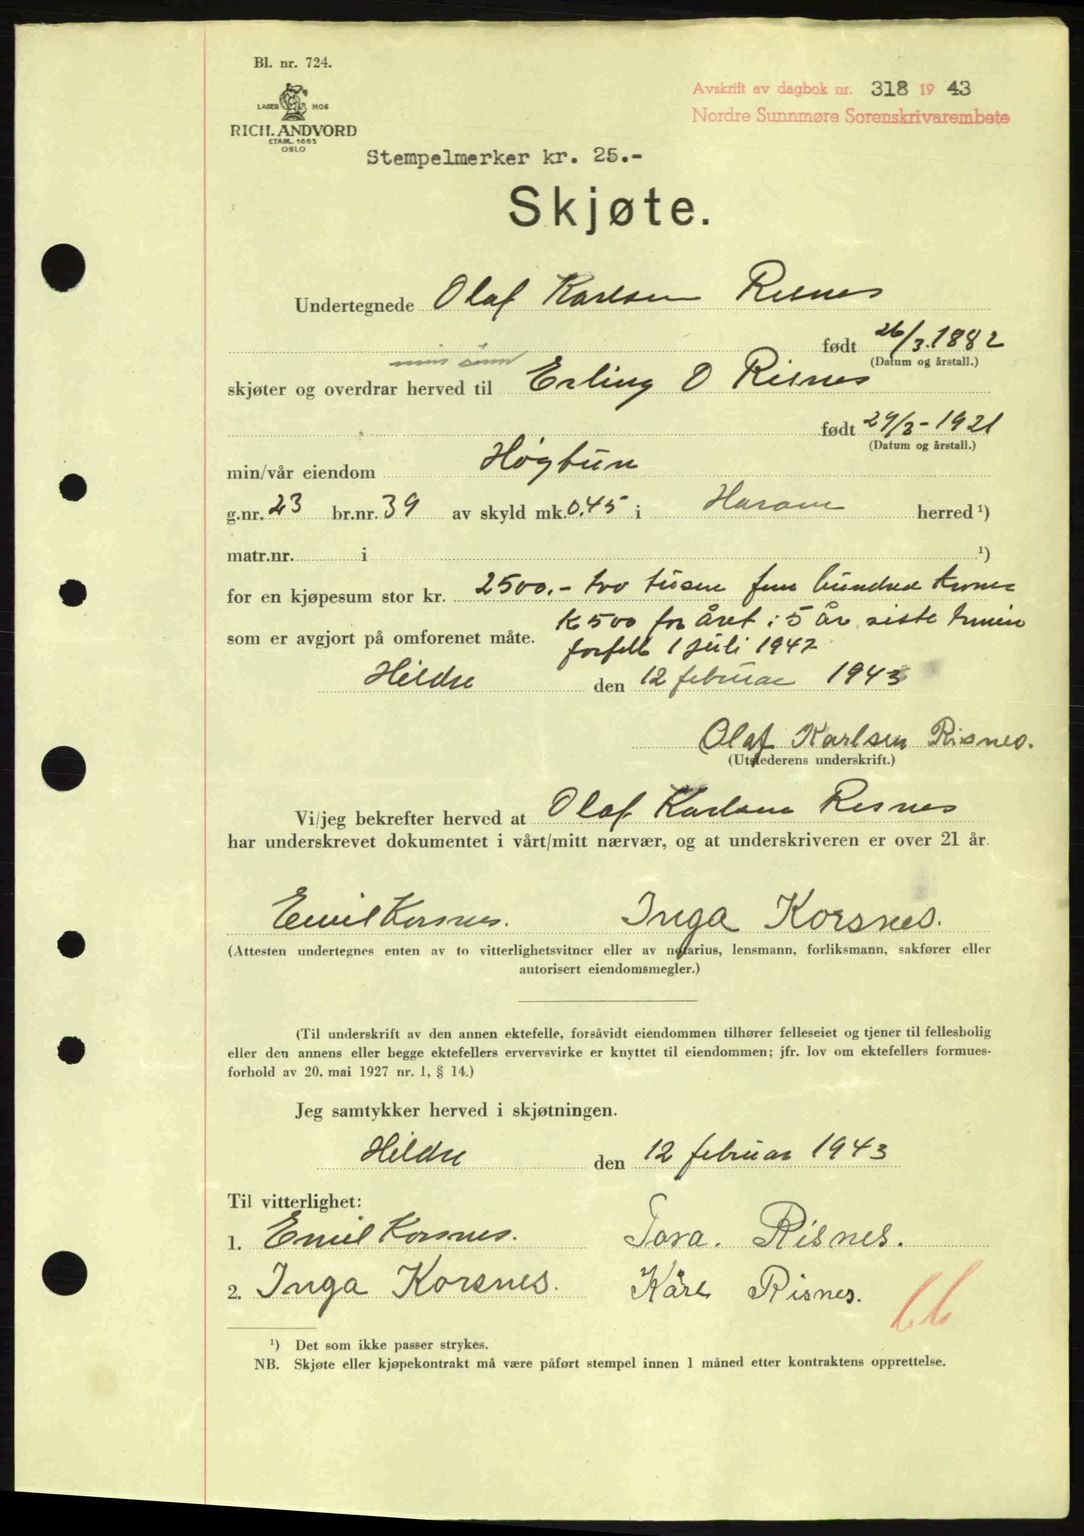 Bl. nr. 724.
LAGER HOS
RICH. ANDVORD
ETABL. 1865
OSLO
Avskrift av dagbok nr. 318 19 43
Nordre Sunnmøre Sorenskrivarembete
Stempelmerker kr. 25.-
Skjøte.
Undertegnede Olaf Karlsen Risnes
født 26/3.1882
(Datum og årstall.)
min sønn
skjøter og overdrar herved til Erling O Risnes
født 29/3-1921
(Datum og årstall.)
min/vår eiendom Høgtun
g.nr. 23 br.nr. 39 av skyld mk. 0.45 i Haram herred ¹)
matr.nr. i ¹)
for en kjøpesum stor kr. 2500.- tvo tusen fem hundred kroner
som er avgjort på omforenet måte. K 500 for året i 5 år siste termin
forfell 1 juli 1947
Hildre den 12 februar 1943
Olaf Karlsen Risnes.
(Utstederens underskrift.)
Vi/jeg bekrefter herved at Olaf Karlsen Risnes
har underskrevet dokumentet i vårt/mitt nærvær, og at underskriveren er over 21 år.
Emil Korsnes. Inga Korsnes.
(Attesten undertegnes enten av to vitterlighetsvitner eller av notarius, lensmann, forliksmann, sakfører eller
autorisert eiendomsmegler.)
(Til underskrift av den annen ektefelle, forsåvidt eiendommen tilhører felleseiet og tjener til fellesbolig
eller den annens eller begge ektefellers ervervsvirke er knyttet til eiendommen; jfr. lov om ektefellers formues-
forhold av 20. mai 1927 nr. 1, § 14.)
Jeg samtykker herved i skjøtningen.
Hildre den 12 februar 1943
Til vitterlighet:
1. Emil Korsnes. Tora. Risnes.
2. Inga Korsnes. Kåre Risnes.
66
¹) Det som ikke passer strykes.
NB. Skjøte eller kjøpekontrakt må være påført stempel innen 1 måned etter kontraktens opprettelse.